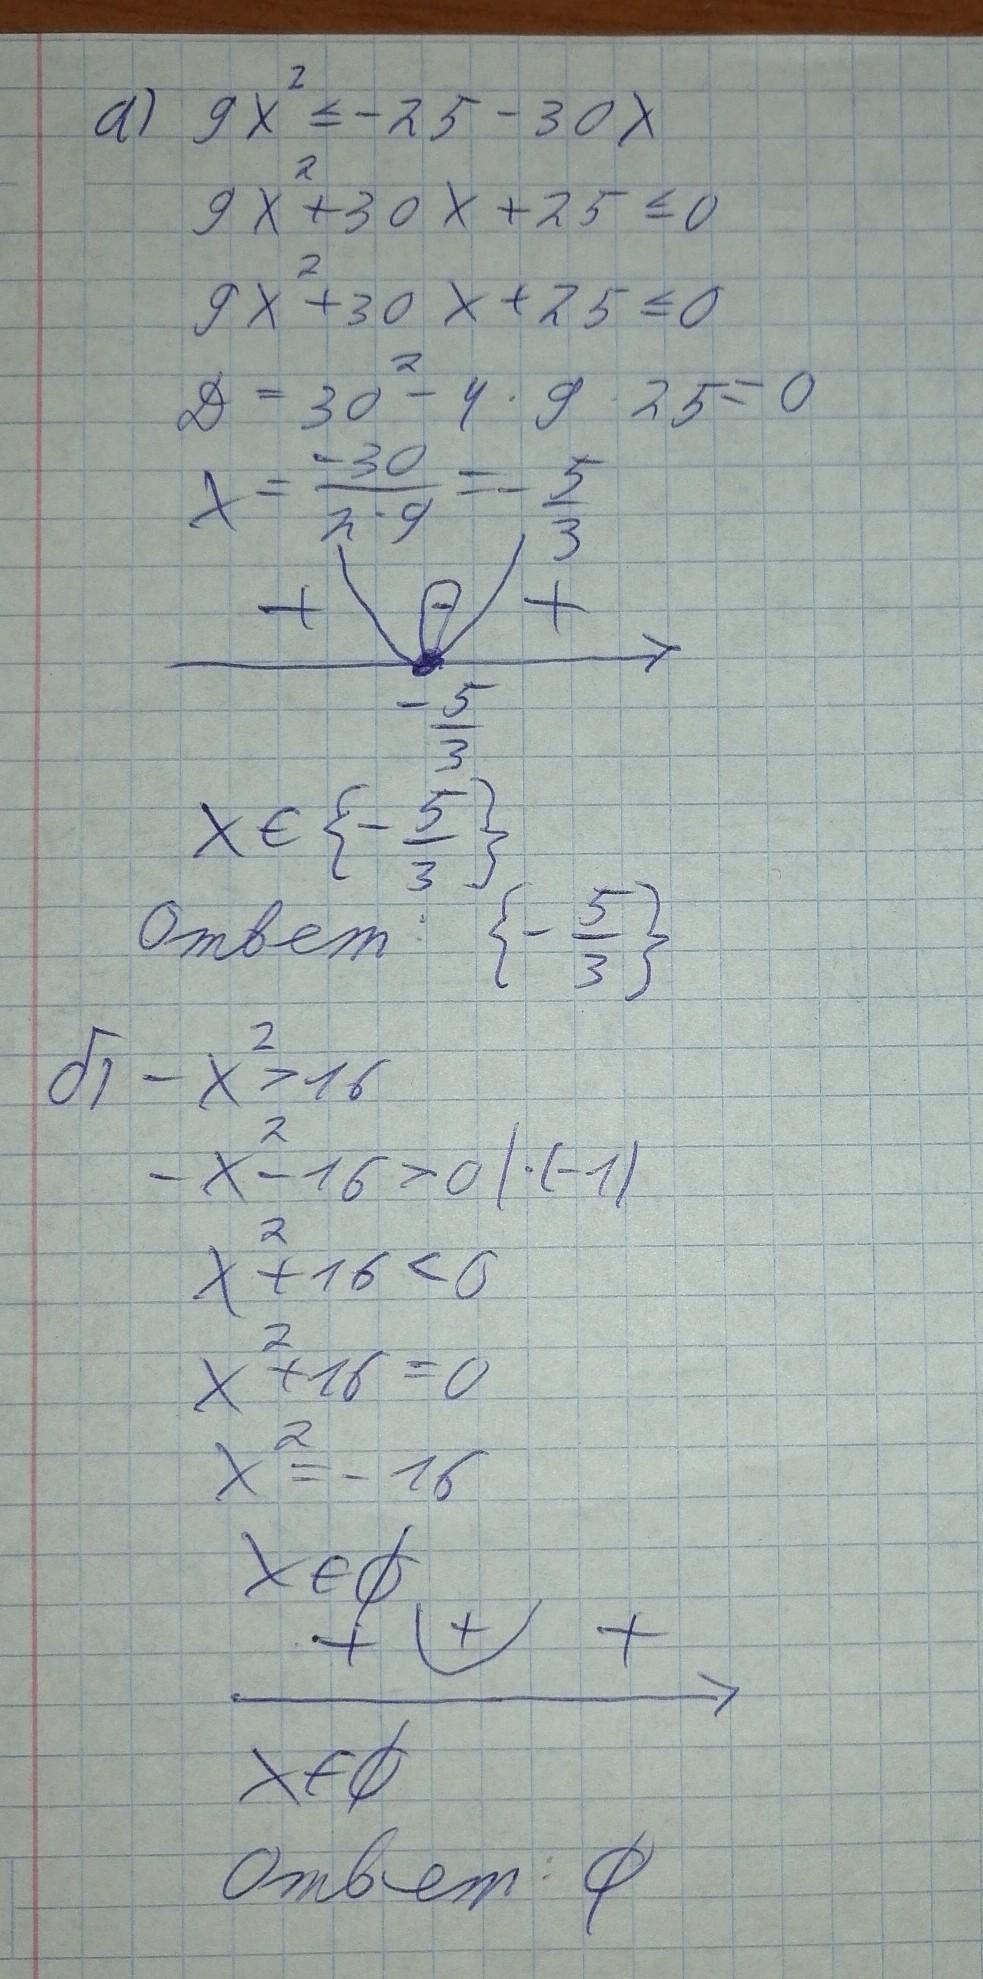 а) 9x² ≤ -25 - 30x
9x² + 30x + 25 ≤ 0
9x² + 30x + 25 ≤ 0
D = 30² - 4 · 9 · 25 = 0
x = -30/(2·9) = -5/3
+ - +
-5/3
x ∈ {-5/3}
Ответ: {-5/3}
б) -x² > 16
-x² - 16 > 0 | · (-1)
x² + 16 < 0
x² + 16 = 0
x² = -16
x ∈ ∅
+ + +
x ∈ ∅
Ответ: ∅